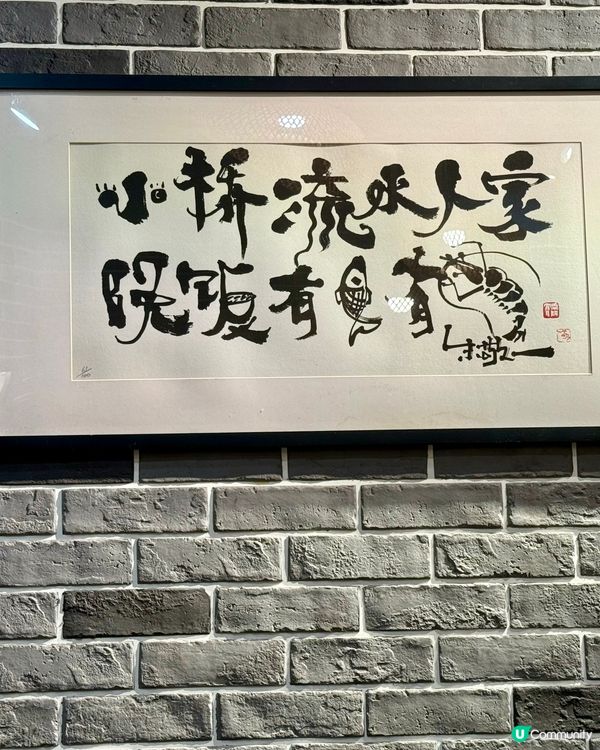 小橋流水人家
晚飯有魚有蝦
朱敬一
U Community